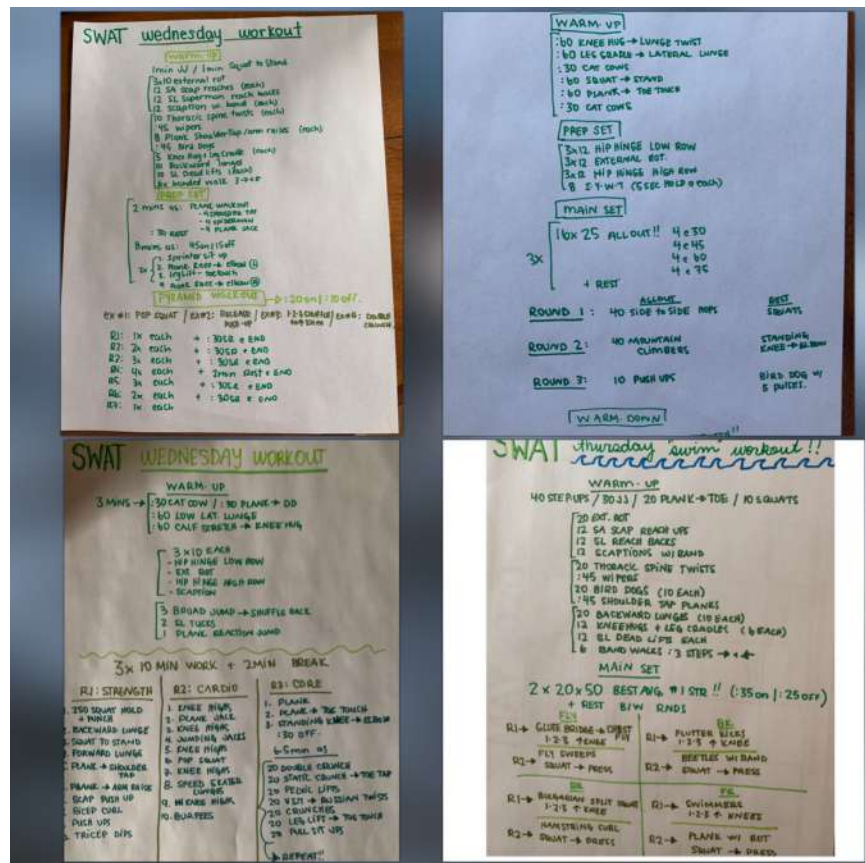 SWAT wednesday workout
WARM-UP
1min JJ / 1min Squat to Stand
3x10 external rot
12 SA scap reaches (each)
12 SL Superman reach backs
12 scaption w/ band (each)
10 Thoracic spine twists (each)
:45 wipers
8 Plank Shoulder Tap/arm raises (each)
:45 Bird Dogs
5 Knee Hug + Leg Cradle (each)
10 Backward lunges
10 SL Dead lifts (each)
banded walk
PREP SET
2 mins as: PLANK WALKOUT
:30 REST
8mins as: 45on/15off
1. Sprinter sit up
2. Plank knee → elbow
3. leg lift → toe touch
4. Plank knee → elbow
PYRAMID WORKOUT → :20on/:10off.
EX #1: POP SQUAT / EX #2: RELEASE PUSH-UP
DOUBLE CRUNCH
R1: 1x each + :30SR @ END
R2: 2x each + :30SR @ END
R3: 3x each + :30SR @ END
R4: 4x each + 2min Rest @ END
R5: 3x each + :30SR @ END
R6: 2x each + :30SR @ END
R7: 1x each
WARM-UP
:60 KNEE HUG → LUNGE TWIST
:60 LEG CRADLE → LATERAL LUNGE
:30 CAT COWS
:60 SQUAT → STAND
:60 PLANK → TOE TOUCH
:30 CAT COWS
PREP SET
3x12 HIP HINGE LOW ROW
3x12 EXTERNAL ROT.
3x12 HIP HINGE HIGH ROW
8 I-Y-W-T (5 SEC HOLD @ each)
MAIN SET
3x 16x25 ALLOUT!! 4@30
4@45
4@60
4@75
+ REST
ALLOUT REST
ROUND 1: 40 SIDE to SIDE HOPS SQUATS
ROUND 2: 40 MOUNTAIN CLIMBERS STANDING KNEE → ELBOW
ROUND 3: 10 PUSH UPS BIRD DOG W/ 5 PULSES.
WARM-DOWN
SWAT WEDNESDAY WORKOUT
WARM-UP
3 MINS → :30 CAT COW / :30 PLANK → DD
:60 LOW LAT. LUNGE
:60 CALF STRETCH → KNEE HUG
3 x 10 EACH
- HIP HINGE LOW ROW
- EXT ROT
- HIP HINGE HIGH ROW
- SCAPTION
3 BROAD JUMP → SHUFFLE BACK
2 SL TUCKS
1 PLANK REACTION JUMP
3x 10 MIN WORK + 2MIN BREAK
R1: STRENGTH
SQUAT HOLD + PUNCH
2. BACKWARD LUNGE
SQUAT TO STAND
FORWARD LUNGE
PLANK → SHOULDER TAP
PLANK → ARM RAISE
SCAP PUSH UP
BICEP CURL
PUSH UPS
TRICEP DIPS
R2: CARDIO
1. KNEE HIGHS
2. PLANK JACK
3. KNEE HIGHS
4. JUMPING JACKS
5. KNEE HIGHS
6. POP SQUAT
7. KNEE HIGHS
8. SPEED SKATER LUNGES
9. KNEE HIGHS
10. BURPEES
R3: CORE
1. PLANK
2. PLANK → TOE TOUCH
3. STANDING KNEE → ELBOW
:30 OFF
6.5min as
20 DOUBLE CRUNCH
20 STATIC CRUNCH → TOE TAP
20 PEDAL LIFTS
20 V SIT → RUSSIAN TWISTS
20 CRUNCHES
20 LEG LIFT → TOE TOUCH
20 FULL SIT UPS
REPEAT!!
SWAT thursday "swim" workout!!
WARM-UP
40 STEP UPS / 30 JJ / 20 PLANK → TOE / 10 SQUATS
20 EXT. ROT
12 SA SCAP REACH UPS
12 SL REACH BACKS
12 SCAPTIONS W/ BAND
20 THORACIC SPINE TWISTS
:45 WIPERS
20 BIRD DOGS (10 EACH)
:45 SHOULDER TAP PLANKS
20 BACKWARD LUNGES (10 EACH)
12 KNEE HUGS + LEG CRADLES (6 EACH)
12 SL DEAD LIFTS EACH
6 BAND WALKS : 3 STEPS → + ←
MAIN SET
2 x 20 x 50 BEST AVG #1 STR!! (:35on/:25off)
+ REST B/W RNDS
FLY
R1 → GLUTE BRIDGE → CHEST FLY
1-2-3 ↑ KNEE
R2 → FLY SWEEPS
SQUAT → PRESS
BK
R1 → FLUTTER KICKS
1-2-3 ↑ KNEE
R2 → BEETLES W/ BAND
SQUAT → PRESS
BR
R1 → BULGARIAN SPLIT SQUAT
1-2-3 ↑ KNEE
R2 → HAMSTRING CURL
SQUAT → PRESS
FR
R1 → SWIMMERS
1-2-3 ↑ KNEES
R2 → PLANK W/
SQUAT → PRESS